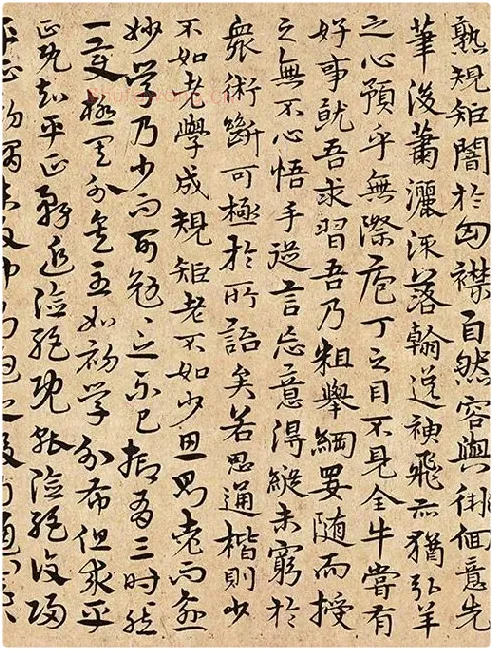 熟規矩闇於胷襟自然容與徘徊意先
筆後蕭灑流落翰逸神飛亦猶弘羊
之心預乎無際庖丁之目不見全牛嘗有
好事就吾求習吾乃粗舉綱要隨而授
之無不心悟手從言忘意得縱未窮於
衆術斷可極於所詣矣若思通楷則少
不如老學成規矩老不如少思則老而逾
妙學乃少而可勉勉之不已抑有三時時然
一變極其分矣至如初學分布但求平
正既知平正務追險絕既能險絕復歸